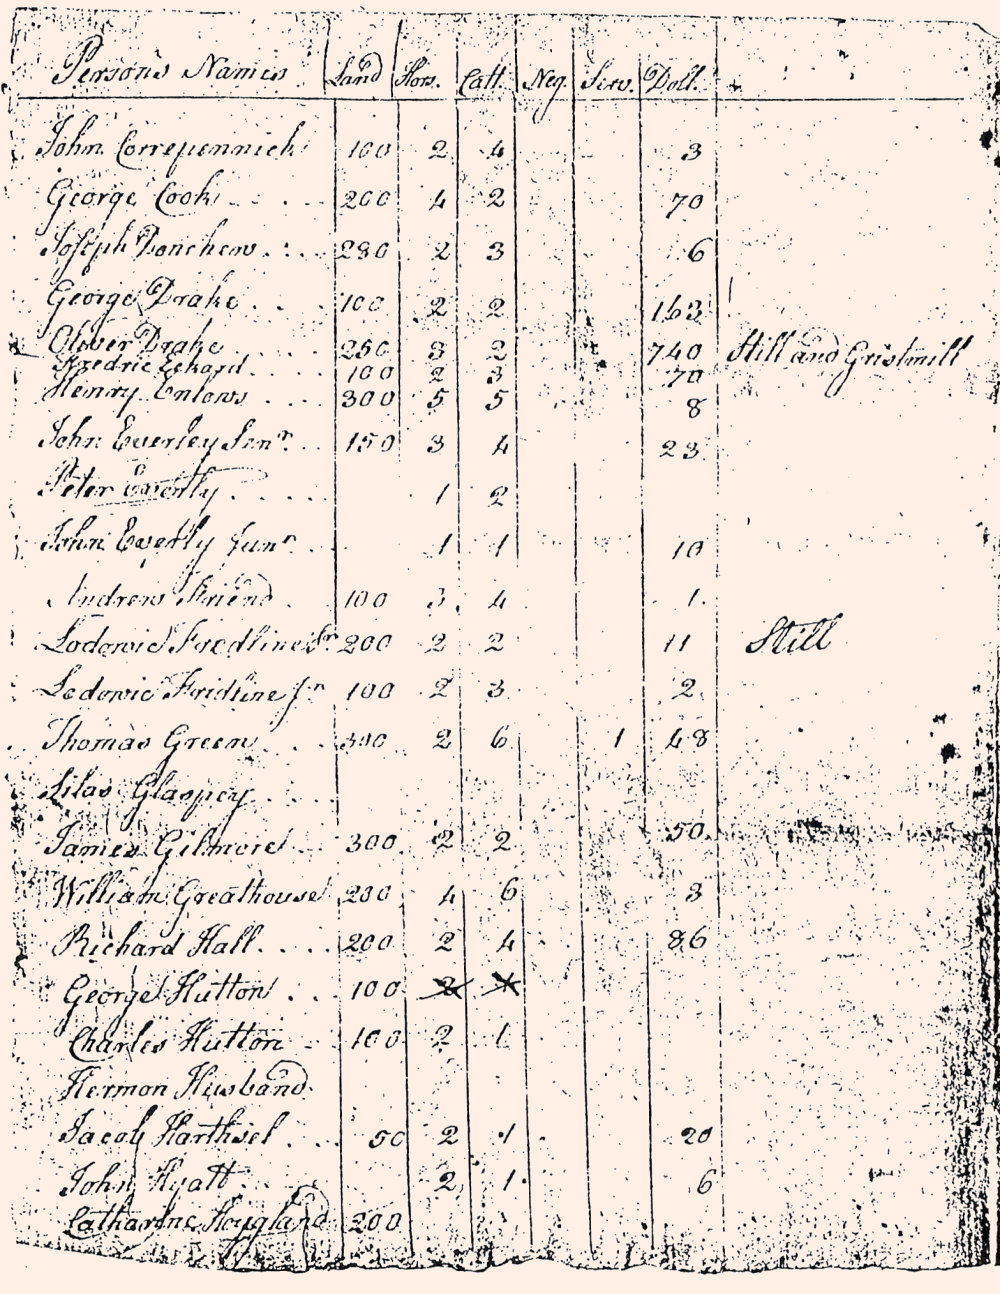 Persons Names Land Hors. Catt. Neg. Serv. Doll.
John Correpennick 100 2 4 3
George Cook 200 4 2 70
Joseph Donchew 280 2 3 6
George Drake 100 2 2 163
Olover Drake 250 3 2 740 Still and Gristmill
Fredric Eckard 100 2 3 70
Henry Enlows 300 5 5 8
John Everley Senr. 150 3 4 23
Peter Everly 1 2
John Everly Junr. 1 1 10
Andrew Friend 100 3 4 1
Lodowic Fredline Sr. 200 2 2 11 Still
Lodowic Fridline Jr 100 2 3 2
Thomas Green 300 2 6 1 48
Silas Glaspey
James Gilmore 300 2 2 50
William Greathouse 200 4 6 3
Richard Hall 200 2 4 86
George Hutton 100 2 4
Charles Hutton 100 2 1
Hermon Husband
Jacob Harthsel 50 2 1 20
John Hyatt 2 1 6
Catharine Hoygland 200